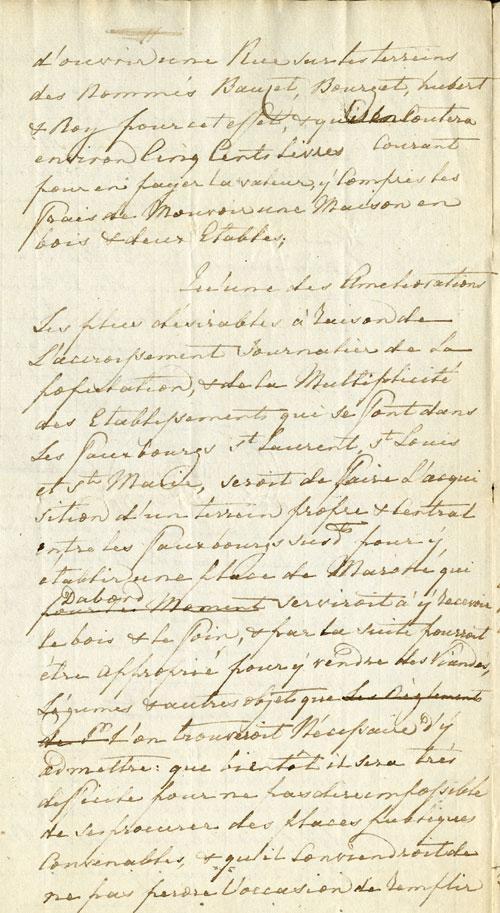 d'ouvrir une Rue sur les terreins
des Nommés Bauzet, Bourget, hubert
& Roy pour cet effet, & qu'il en Coutera
environ Cinq Cents livres Courant
pour en payer la valeur, y Compris les
frais de Mouvoir une Maison en
bois & deux Etables;
Qu'une des Améliorations
Les plus désirables à raison de
L'accroissement Journalier de La
population, & de la Multiplicité
des Etablissements qui se font dans
Les fauxbourgs St. Laurent, St. Louis
et Ste Marie, seroit de faire L'acqui
sition d'un terrein propre & Central
entre les fauxbourgs susds pour y
etablir une place de Marché, qui
Dabord
pour le Moment serviroit à y recevoir
le bois & le foin, & par la suite pourroit
être approprié pour y vendre des Viandes,
Légumes & autres objets que Les Règlements
de Pce L'on trouveroit Nécessaire d'y
admettre: que bientôt il sera très
difficile pour ne pas dire impossible
de se procurer des places publiques
Convenables, & qu'il Conviendroit de
ne pas perdre l'occasion de remplir